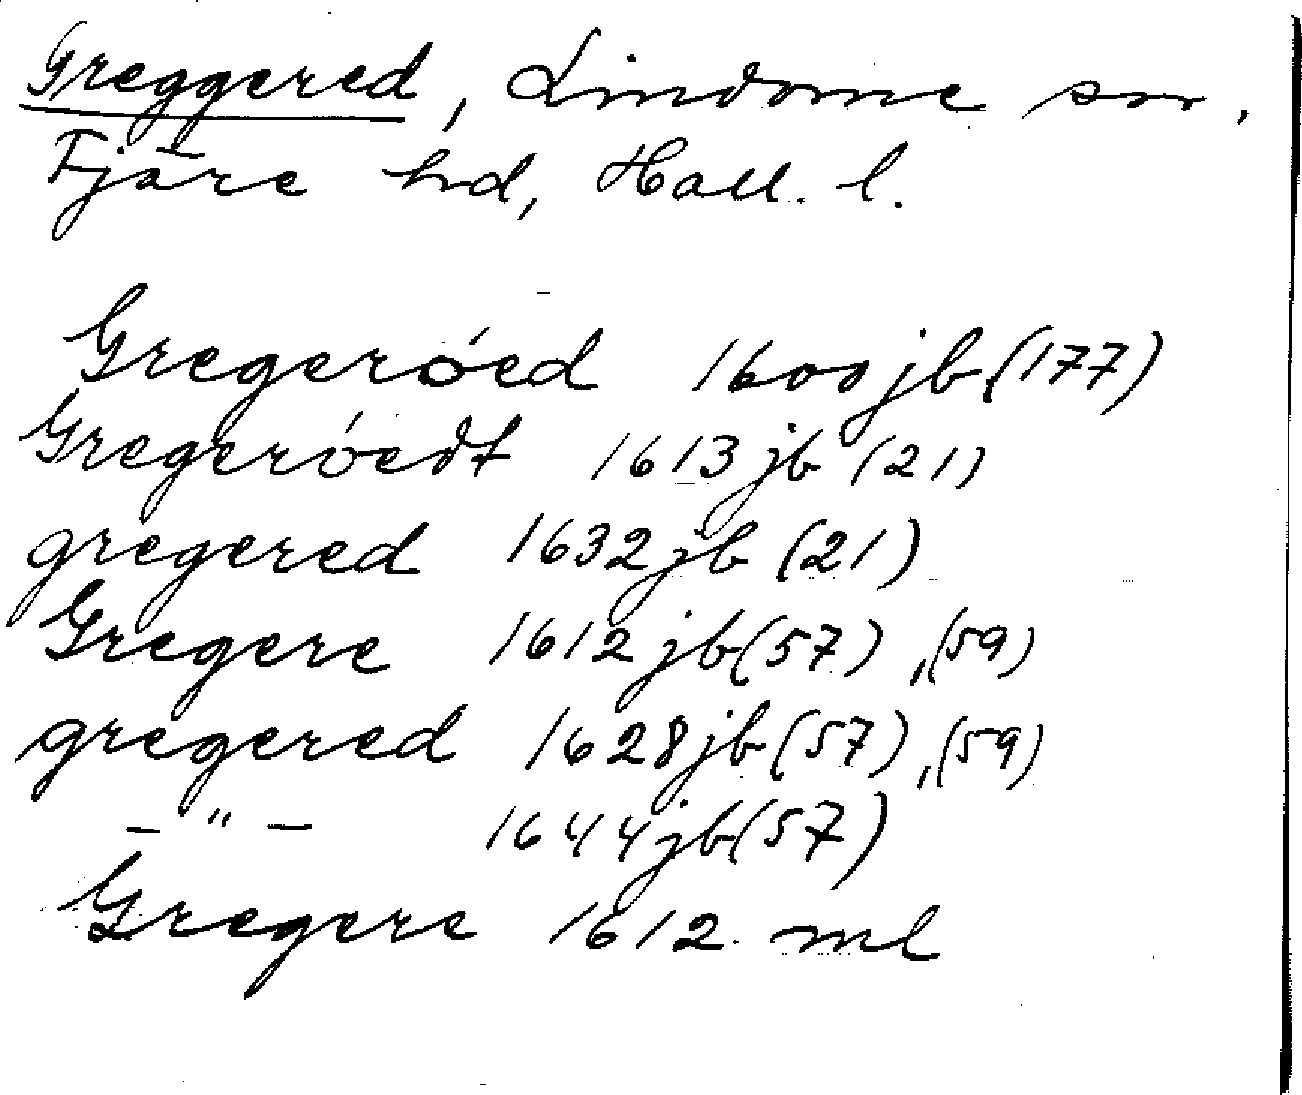 Greggered, Lindome sn,
Fjäre hd, Hall. l.
Gregeróed 1600 jb (177)
Gregeróedt 1613 jb (21)
gregered 1632 jb (21)
Gregere 1612 jb (57), (59)
gregered 1628 jb (57), (59)
— " — 1644 jb (57)
Gregere 1612 ml